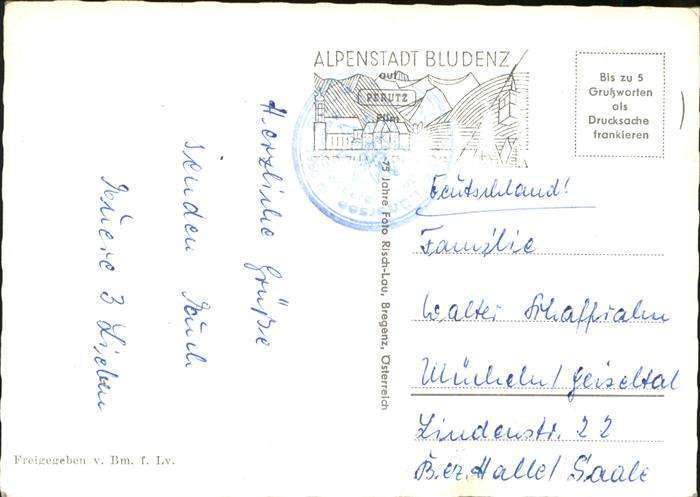 ALPENSTADT BLUDENZ
auf
PERUTZ
Film
Bis zu 5
Grußworten
als
Drucksache
frankieren
Herzliche Grüße
senden Euch
Eure 3 Lieben
75 Jahre Foto Risch-Lau, Bregenz, Österreich
Deutschland!
Familie
Walter
Mücheln/Geiseltal
Lindenstr. 22
Bez. Halle/Saale
Freigegeben v. Bm. f. Lv.